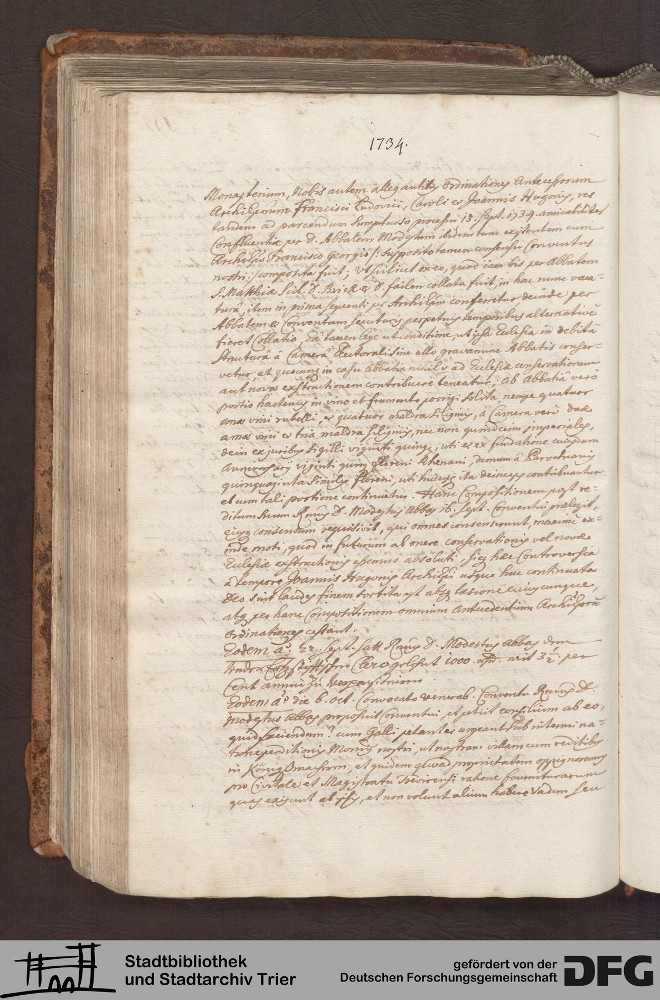 1734.
Monasterium, Nobis autem allegantibus ordinationes Antecessorum
Archiep̄orum Francisci Ludovici, Caroli et Joannis Hugonis, res
tandem ad parcendum sumptuoso processui 18. Sept. 1734 amicabiliter
Confluentiae per D. Abbatem Modestum ibidem tunc existentem cum
Archiep̄o Francisco Georgio /: supposito tamen consensu Conventus
nostri :/ composita fuit; ut scilicet ex eo, quod jam bis per Abbatem
S. Matthiae scil. D. et D. collata fuit, in hac nunc vaca-
tura, item in prima sequenti per Archiep̄um conferretur deinde per
Abbatem et Conventum secuturis perpetuis temporibus alternativè
fieret Collatio, eâ tamen lege ut conditione, ut ipsa Ecclesia in debitâ
structurâ à Camerâ Electorali sine ullo gravamine Abbatis conser-
vetur, et quocunque in casu abbatia nihil ad Ecclesiae conservationem
aut novae exstructionem contribuere teneatur; ab Abbatiâ verò
portio hactenus in vino et frumento porrigi solita, nempe quatuor
amae vini rubelli, et quatuor maldra siliginis, à Camerâ verò duae
amae vini et tria maldra siliginis, nec non quindecim imperiales,
dein ex juribus sigilli viginti quinque, uti et ex fundatione cujusdam
Anniversarii viginti quinque floreni Rhenani, demum à Parochianis
quinquaginta similes floreni, uti hucusque ita deinceps contribuantur
et cum tali portione continuetur. Hanc Compositionem post re-
ditum suum Rmus D. Modestus abbas 26. Sept. Conventui praelegit,
ejusque consensum requisivit, qui omnes consenserunt, maximè ex-
inde moti, quod in futurum ab onere conservationis vel novae
Ecclesiae exstructionis essemus absoluti. Sicque haec Controversia
à tempore Joannis Hugonis Archiep̄i usque huc continuata
Deo sint laudes finem sortita est absque laesione cujuscunque,
atque per hanc Compositionem omnium Antecedentium Archiep̄orum
ordinationes cessant.
Eodem aō. 22. Sept. hatt Rmus D. Modestus Abbas dem
Clero gelehnt 1000 rthlr. mit 3½ per
Cent annuè zu verpensioniren.
Eodem aō die 6. oct. Convocato venerab. Conventu Rmus D.
Modestus Abbas proposuit Conventui, et petiit consilium ab eo,
quid faciendum? cum Galli petantes urgeant sub interminatio-
ne expeditionis Monrii nostri, ut nostram villam cum reditibus
in Königsmachern, et quidem quoad proprietatem oppignoremus
pro Civitate et Magistratu Trevirensi ratione fouriturarum
quas exigunt ab ipsis, et non volunt alium habere vadem seu
Stadtbibliothek
und Stadtarchiv Trier
gefördert von der
Deutschen Forschungsgemeinschaft
DFG